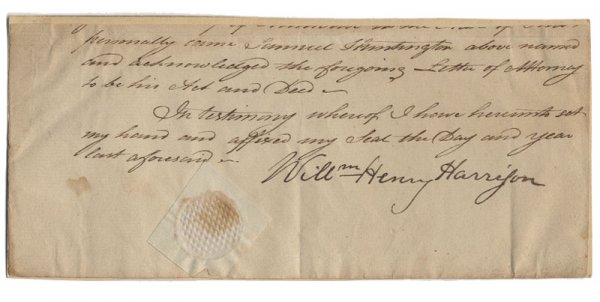 personally came Samuel Huntington above named
and acknowledged the foregoing Letter of Attorney
to be his Act and Deed –
In testimony whereof I have hereunto set
my hand and affixed my Seal the Day and year
last aforesaid –
Will.m Henry Harrison